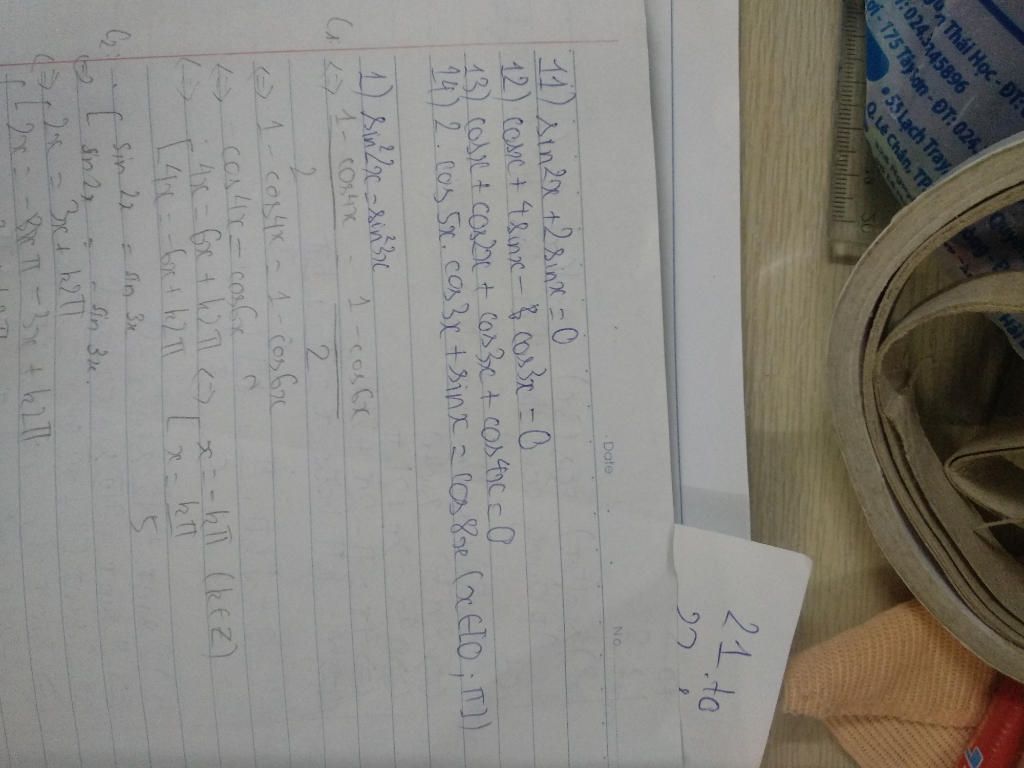 11) sin2x + 2sinx = 0
12) cosx + 4sinx - 8 cos³x = 0
13) cosx + cos2x + cos3x + cos4x = 0
14) 2. cos5x. cos3x + sinx = cos8x (x∈[0; π])
1) sin²2x = sin²3x
C₁ <=> 1 - cos4x / 2 = 1 - cos6x / 2
<=> 1 - cos4x = 1 - cos6x
<=> cos4x = cos6x
<=> [ 4x = 6x + k2π <=> [ x = -kπ (k∈Z)
[ 4x = -6x + k2π [ x = kπ / 5
C₂ <=> [ sin2x = sin3x
[ sin2x = -sin3x
<=> [ 2x = 3x + k2π
[ 2x = π - 3x + k2π
Date
No.
21. to
22,
Thái Học - ĐT:
024.3 45896
175 Tây Sơn - ĐT: 024
• 53 Lạch Tray
Q. Lê Chân, TP
ĐT: 0